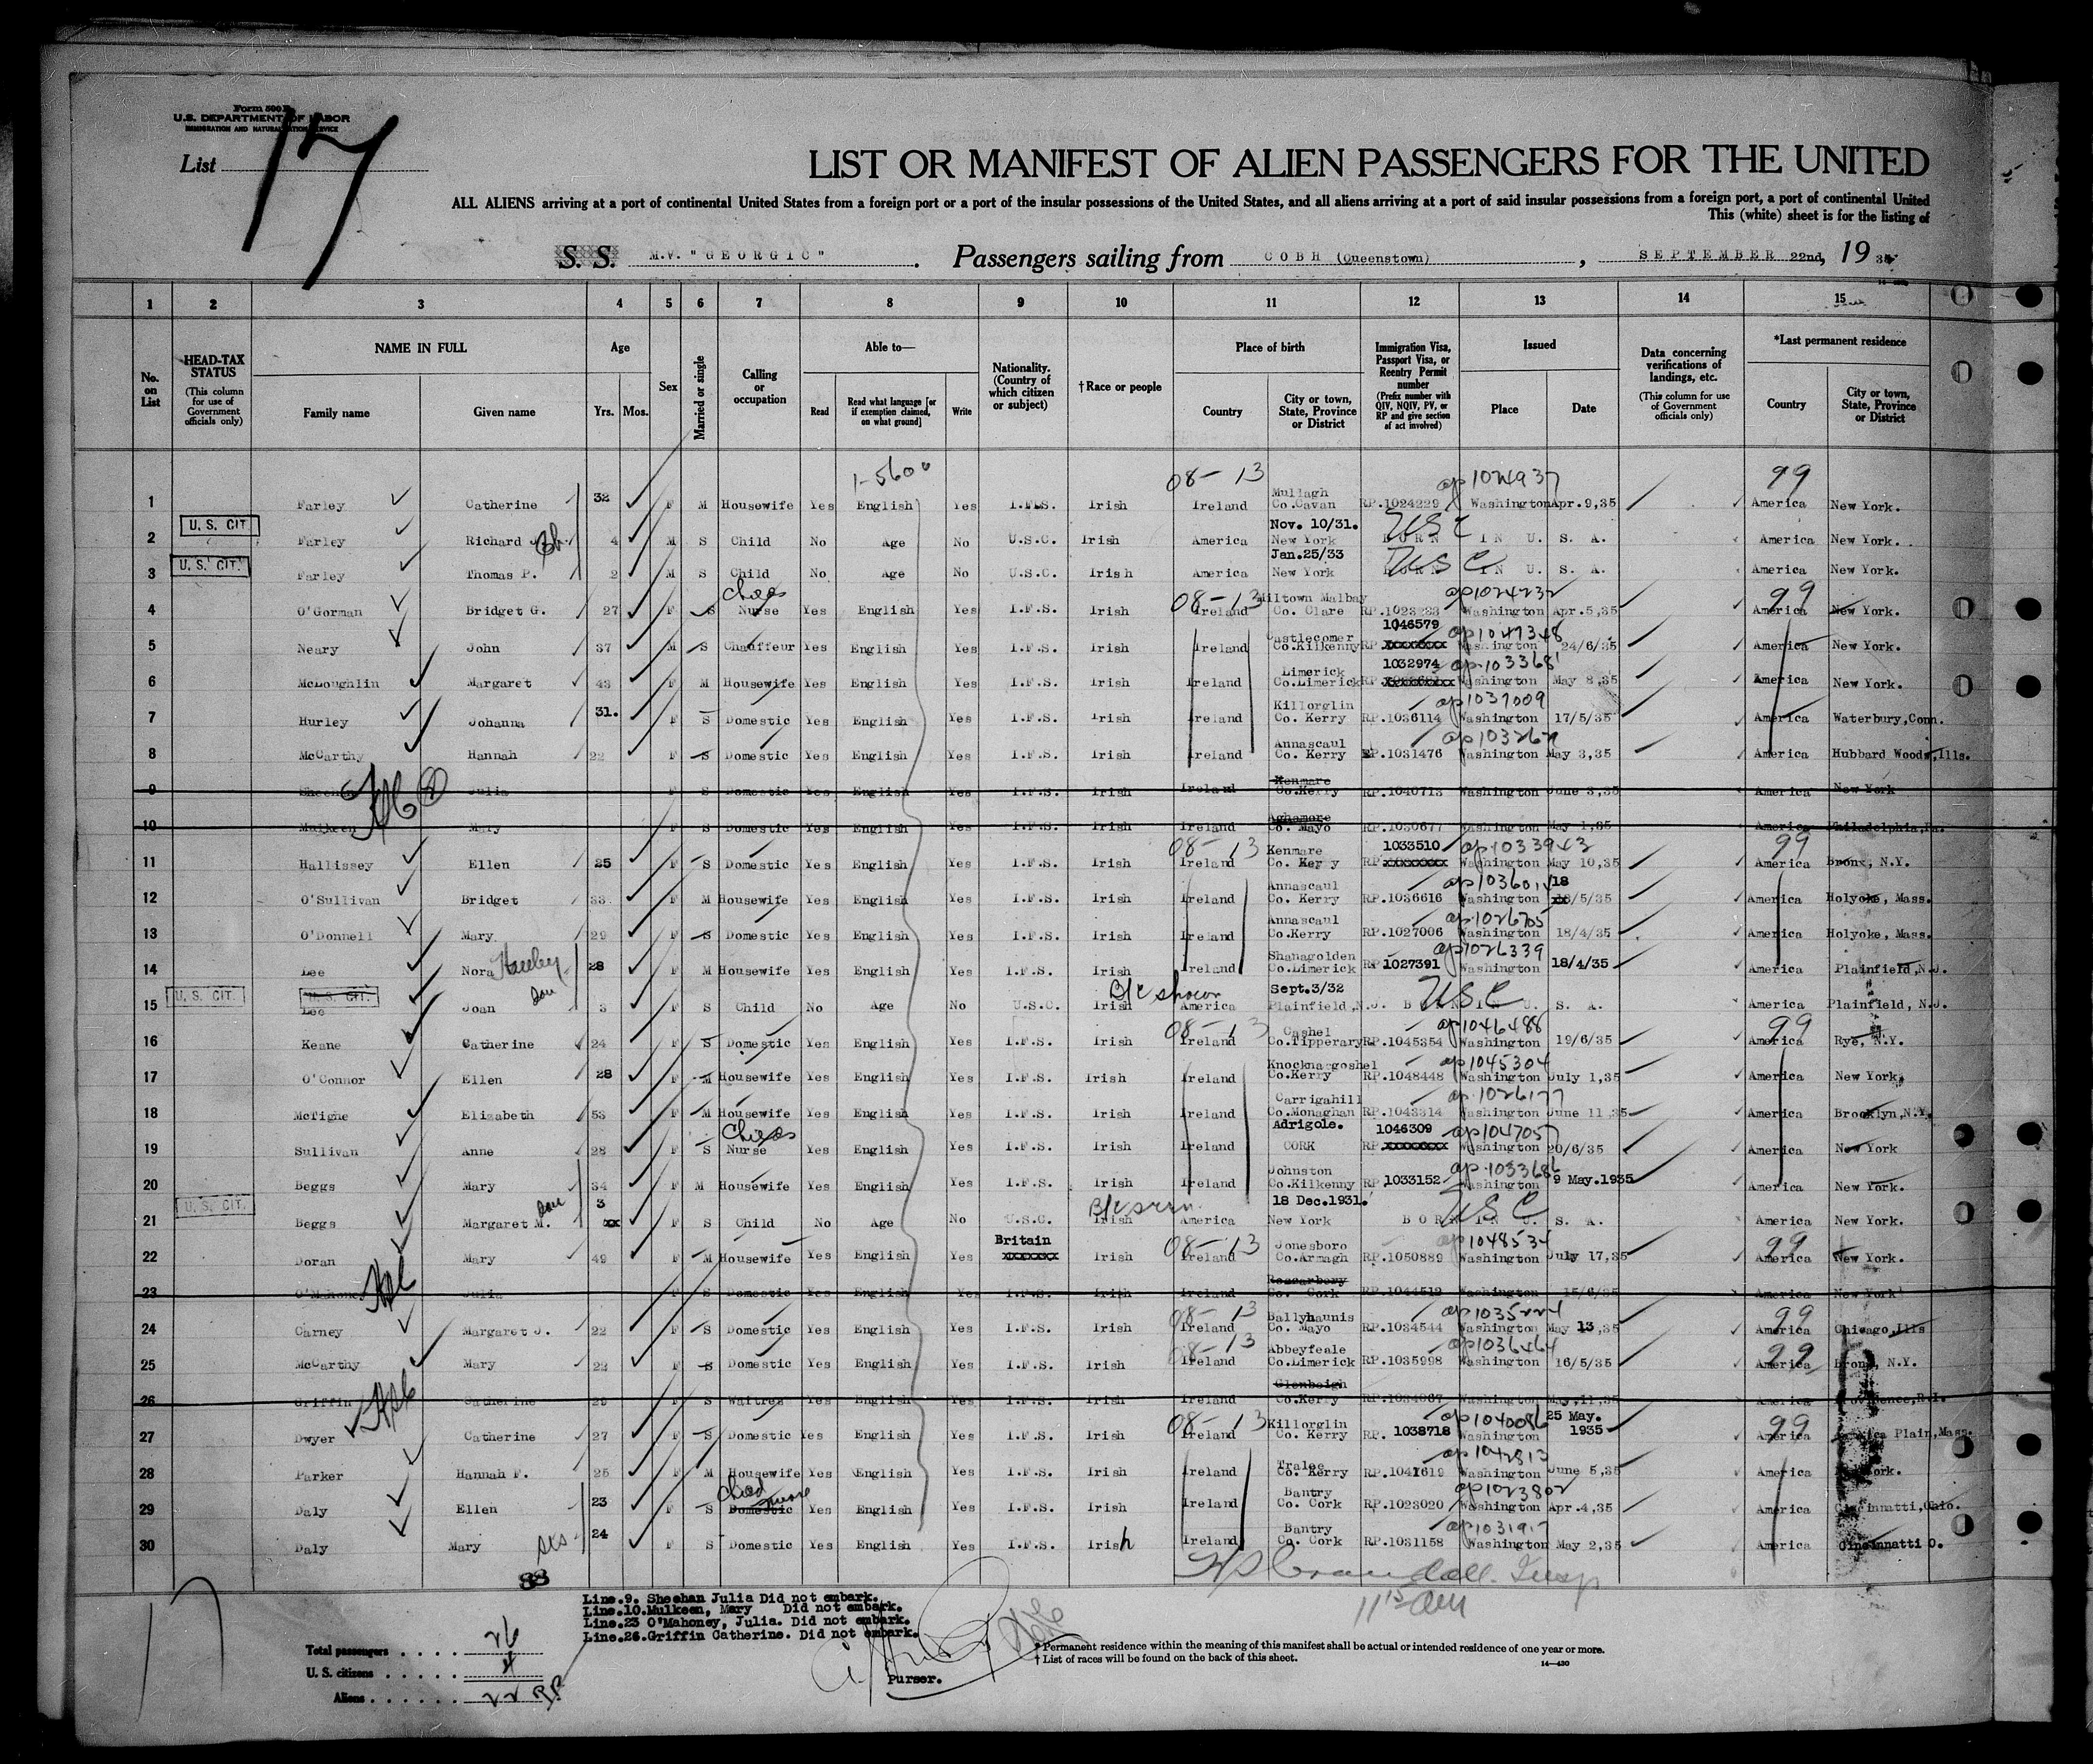 Form 500
U.S. DEPARTMENT OF LABOR
IMMIGRATION AND NATURALIZATION SERVICE
List 17
LIST OR MANIFEST OF ALIEN PASSENGERS FOR THE UNITED
ALL ALIENS arriving at a port of continental United States from a foreign port or a port of the insular possessions of the United States, and all aliens arriving at a port of said insular possessions from a foreign port, a port of continental United
This (white) sheet is for the listing of
S. S. M.V. "GEORGIC". Passengers sailing from COBH (Queenstown), SEPTEMBER 22nd, 19
1 2 3 4 5 6 7 8 9 10 11 12 13 14 15
No. on List
HEAD-TAX STATUS (This column for use of Government officials only)
NAME IN FULL Family name Given name
Age Yrs. Mos.
Sex
Married or single
Calling or occupation
Able to— Read Read what language [or if exemption claimed, on what ground] Write
Nationality. (Country of which citizen or subject)
†Race or people
Place of birth Country City or town, State, Province or District
Immigration Visa, Passport Visa, or Reentry Permit number (Prefix number with QIV, NQIV, PV, or RP and give section of act involved)
Issued Place Date
Data concerning verifications of landings, etc. (This column for use of Government officials only)
*Last permanent residence Country City or town, State, Province or District
1-5600 08-13 ap1024937 99
1 Farley Catherine 32 F M Housewife Yes English Yes I.F.S. Irish Ireland Mullagh Co.Cavan RP.1024229 Washington Apr.9,35 America New York.
2 U. S. CIT. Farley Richard J. 4 M S Child No Age No U.S.C. Irish America Nov. 10/31. New York USC BORN IN U. S. A. America New York.
3 U. S. CIT. Farley Thomas P. 2 M S Child No Age No U.S.C. Irish America Jan.25/33 New York USC BORN IN U. S. A. America New York.
4 O'Gorman Bridget G. 27 F S Nurse Yes English Yes I.F.S. Irish 08-13 Ireland Miltown Malbay Co. Clare ap1024232 Washington Apr.5,35 99 America New York.
5 Neary John 37 M S Chauffeur Yes English Yes I.F.S. Irish Ireland Castlecomer Co.Kilkenny RP. 1046579 ap1047348 Washington 24/6/35 America New York.
6 McLoughlin Margaret 43 F M Housewife Yes English Yes I.F.S. Irish Ireland Limerick Co.Limerick RP 1032974 ap.103368 Washington May 8,35 America New York.
7 Hurley Johanna 31. F S Domestic Yes English Yes I.F.S. Irish Ireland Killorglin Co. Kerry RP.1036114 ap1037009 Washington 17/5/35 America Waterbury,Conn.
8 McCarthy Hannah 22 F S Domestic Yes English Yes I.F.S. Irish Ireland Annascaul Co. Kerry RP.1031476 Washington May 3,35 America Hubbard Woods,Ills.
9 Sheehan Julia F S Domestic Yes English Yes I.F.S. Irish Ireland Kenmare Co.Kerry RP.1040713 Washington June 3,35 America New York
10 Mulkeen Mary F S Domestic Yes English Yes I.F.S. Irish Ireland Aghamore Co. Mayo RP.1030677 Washington May 1,35 America Philadelphia,Pa.
11 Hallissey Ellen 25 F S Domestic Yes English Yes I.F.S. Irish 08-13 Ireland Kenmare Co. Kerry RP. 1033510 ap1033943 Washington May 10,35 99 America Bronx, N.Y.
12 O'Sullivan Bridget 33 F M Housewife Yes English Yes I.F.S. Irish Ireland Annascaul Co. Kerry RP.1036616 Washington 18/5/35 America Holyoke, Mass.
13 O'Donnell Mary 29 F S Domestic Yes English Yes I.F.S. Irish Ireland Annascaul Co.Kerry RP.1027006 ap.1026705 Washington 18/4/35 America Holyoke, Mass.
14 Lee Nora 28 F M Housewife Yes English Yes I.F.S. Irish Ireland Shanagolden Co.Limerick RP 1027391 ap1026339 Washington 18/4/35 America Plainfield,N.J.
15 U. S. CIT. U. S. CIT. Lee Joan dau 3 F S Child No Age No U.S.C. Irish B/c shown America Sept.3/32 Plainfield,N.J. USC BORN IN U. S. A. America Plainfield, N.J.
16 Keane Catherine 24 F S Domestic Yes English Yes I.F.S. Irish 08-13 Ireland Cashel Co.Tipperary RP.1045354 ap1046488 Washington 19/6/35 99 America Rye, N.Y.
17 O'Connor Ellen 28 F M Housewife Yes English Yes I.F.S. Irish Ireland Knocknagoshel Co.Kerry RP.1048448 ap1045304 Washington July 1,35 America New York.
18 McTigne Elizabeth 53 F M Housewife Yes English Yes I.F.S. Irish Ireland Carrigahill Co.Monaghan RP.1043314 ap.1026177 Washington June 11,35 America Brooklyn,N.Y.
19 Sullivan Anne 28 F S Nurse Yes English Yes I.F.S. Irish Ireland Adrigole. CORK RP. 1046309 ap1047057 Washington 20/6/35 America New York
20 Beggs Mary 34 F M Housewife Yes English Yes I.F.S. Irish Ireland Johnston Co.Kilkenny RP 1033152 ap.1033686 Washington 9 May.1935 America New York.
21 U. S. CIT. Beggs Margaret M. dau 3 F S Child No Age No U.S.C. Irish America 18 Dec.1931. New York USC BORN IN U. S. A. America New York.
22 Doran Mary 49 F M Housewife Yes English Yes Britain Irish 08-13 Ireland Jonesboro Co.Armagh RP.1050889 ap1048534 Washington July 17,35 99 America New York.
23 O'Mahoney Julia F S Domestic Yes English Yes I.F.S. Irish Ireland Rosscarbery Co. Cork RP.1044519 Washington 15/6/35 America New York
24 Carney Margaret J. 22 F S Domestic Yes English Yes I.F.S. Irish 08-13 Ireland Ballyhaunis Co. Mayo RP.1034544 ap1035224 Washington May 13,35 99 America Chicago,Ills
25 McCarthy Mary 22 F S Domestic Yes English Yes I.F.S. Irish 08-13 Ireland Abbeyfeale Co.Limerick RP.1035998 ap1036464 Washington 16/5/35 99 America Bronx, N.Y.
26 Griffin Catherine 29 F S Waitress Yes English Yes I.F.S. Irish Ireland Glenbeigh Co.Kerry RP.1034067 Washington May.11,35 America Providence,R.I.
27 Dwyer Catherine 27 F S Domestic Yes English Yes I.F.S. Irish 08-13 Ireland Killorglin Co. Kerry RP. 1038718 ap1040086 Washington 25 May. 1935 99 America Jamaica Plain,Mass.
28 Parker Hannah F. 25 F M Housewife Yes English Yes I.F.S. Irish Ireland Tralee Co. Kerry RP.1041619 ap1042813 Washington June 5,35 America New York.
29 Daly Ellen 23 F S Domestic Child nurse Yes English Yes I.F.S. Irish Ireland Bantry Co. Cork RP.1023020 ap1023802 Washington Apr.4,35 America Cincinnatti,Ohio.
30 Daly Mary sis 24 F S Domestic Yes English Yes I.F.S. Irish Ireland Bantry Co. Cork RP.1031158 ap1031917 Washington May 2,35 America Cincinnatti O.
Line.9. Sheehan Julia Did not embark.
Line.10.Mulkeen, Mary Did not embark.
Line.23 O'Mahoney, Julia. Did not embark.
Line.26.Griffin Catherine. Did not embark.
Purser.
Total passengers .... 26
U. S. citizens ..... 4
Aliens ...... 22 RP
* Permanent residence within the meaning of this manifest shall be actual or intended residence of one year or more.
† List of races will be found on the back of this sheet.
14—430